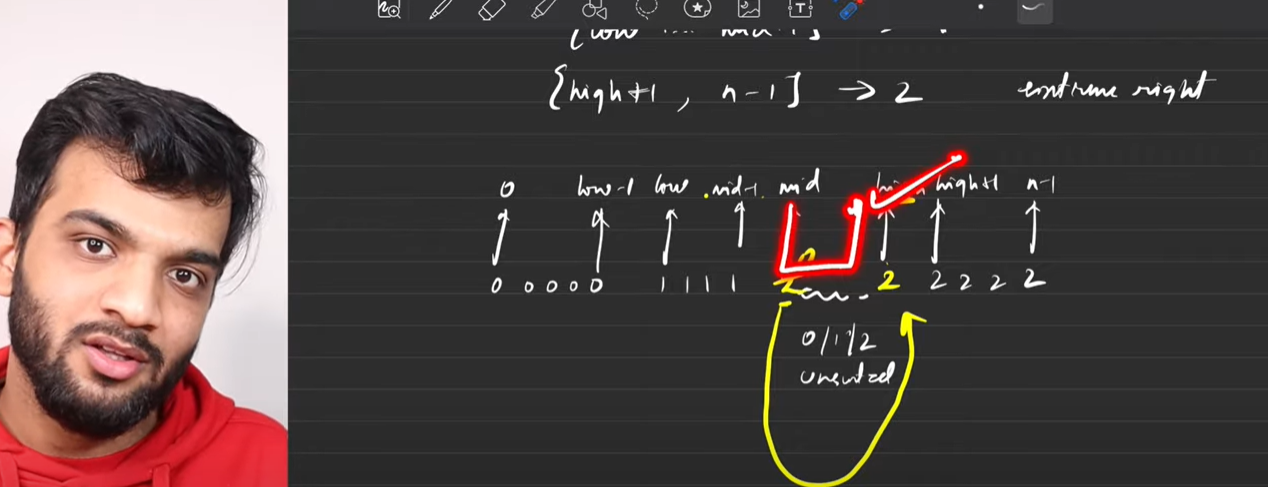 [high+1 , n-1] → 2 extreme right
0 low-1 low mid-1 mid high+1 n-1
0 0 0 0 0 1 1 1 1 2 2 2 2 2 2
0/1/2
unsorted